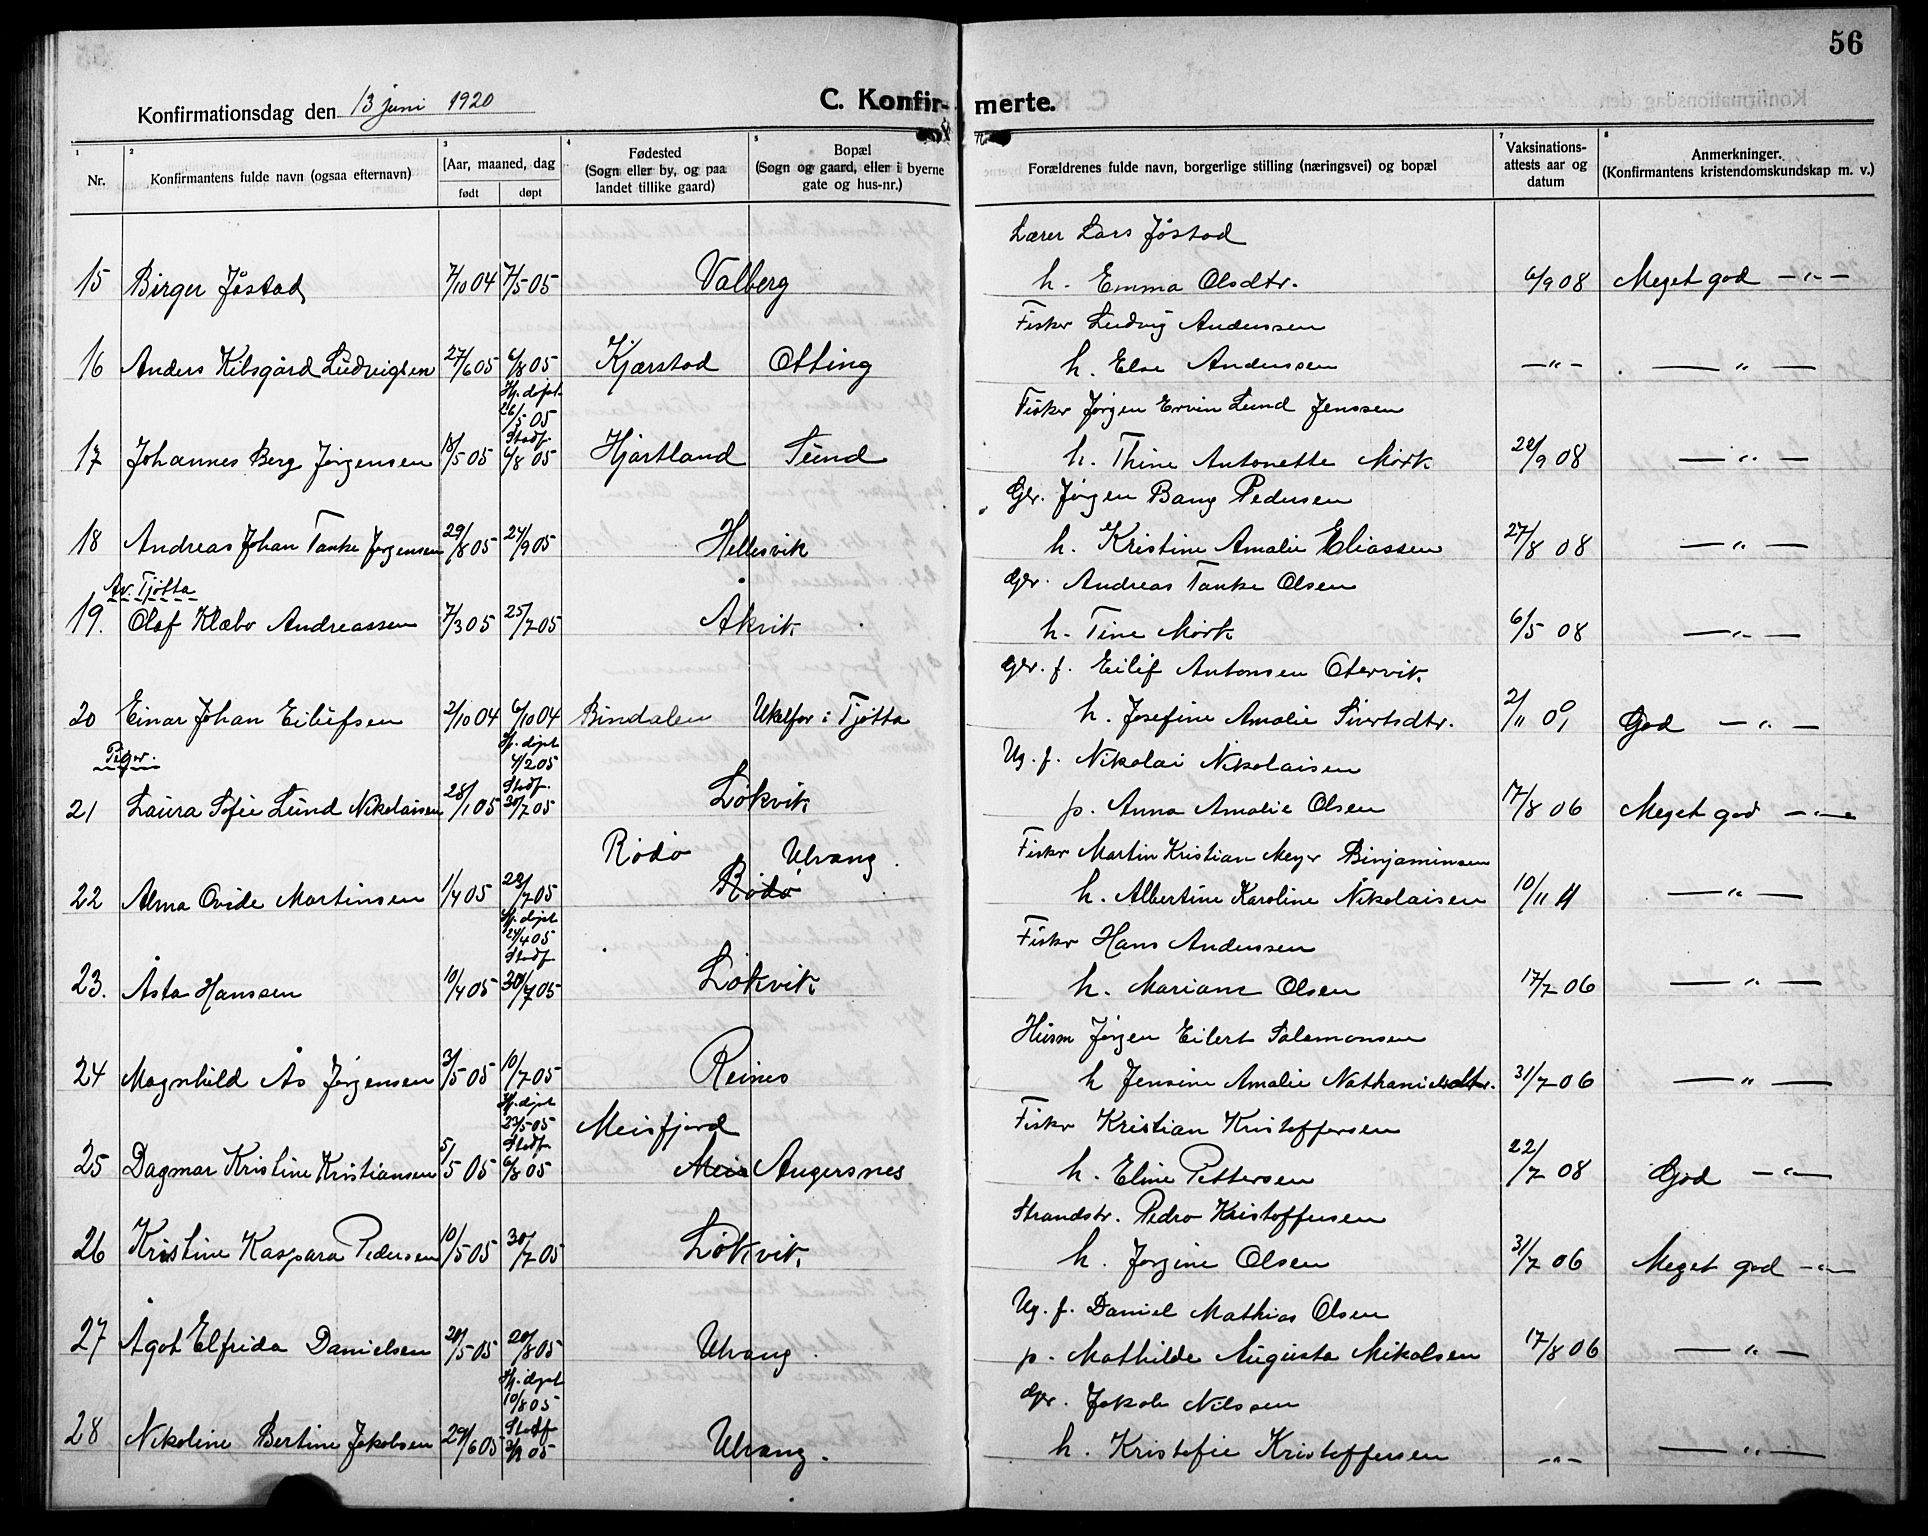 56
Konfirmationsdag den 13 juni 1920
C. Konfirmerte.
1 2 3 4 5 7 8
Nr. Konfirmantens fulde navn (ogsaa efternavn) Aar, maaned, dag født døpt Fødested (Sogn eller by, og paa landet tillike gaard) Bopæl (Sogn og gaard, eller i byerne gate og hus-nr.) Forældrenes fulde navn, borgerlige stilling (næringsvei) og bopæl Vaksinations-attests aar og datum Anmerkninger. (Konfirmantens kristendomskundskap m. v.)
Lærer Lars Jøstad
15 Birger Jøstad 7/10 04 7/5 05 Valberg h. Emma Olsdtr. 6/9 08 Meget god —"—
Fisker Ludvig Anderssen
16 Anders Kibsgård Ludvigsen 27/6 05 6/8 05 Kjærstad Otting h. Else Anderssen —"— —"—
Hj. døpt 26/5 05 Fisker Jørgen Ervin Lund Jenssen
Stadf.
17 Johannes Berg Jørgensen 18/5 05 6/8 05 Hjartland Sund h. Thine Antonette Mörk 20/9 08 —"—
Gbr. Jørgen Bang Pedersen
18 Andreas Johan Tanke Jørgensen 29/8 05 24/9 05 Hellesvik h. Kristine Amalie Eliassen 27/8 08 —"—
Av. Tjøtta Gbr. Andreas Tanke Olsen
19. Olaf Klæbo Andreassen 7/3 05 25/7 05 Åkvik h. Tine Mörk 6/5 08 —"—
Gbr. f. Eilif Antonsen Otervik
20 Einar Johan Eilifsen 2/10 04 6/10 04 Bindalen Ukelfor i Tjøtta h. Josefine Amalie Sivertsdtr. 2/11 09 God —"—
Piger. Hj. døpt 4/2 05 Ug. f. Nikolai Nikolaisen
Stadf.
21 Laura Sofie Lund Nikolaisen 28/1 05 30/7 05 Løkvik p. Anna Amalie Olsen 17/8 06 Meget god —"—
Rødø Ulvang. Fisker Martin Kristian Meyer Binjaminsen
22 Alma Ovide Martinsen 1/4 05 23/7 05 Rødø h. Albertine Karoline Nikolaisen 10/11 11 —"—
Hj. døpt 24/4 05 Fisker Hans Anderssen
Stadf
23. Åsta Hanssen 10/4 05 30/7 05 Løkvik h. Mariane Olsen 17/7 06 —"—
Husm Jørgen Eilert Salamonsen
24 Magnhild Ås Jørgensen 3/5 05 10/7 05 Reines h Jensine Amalie Nathanielsdtr. 31/7 06 —"—
Hj. døpt 23/5 05 Meisfjord Fisker Kristian Kristoffersen
Stadf
25 Dagmar Kristine Kristiansen 5/5 05 6/8 05 Meis Angersnes h. Eline Pettersen 22/7 08 God —"—
Strandstr. Pedro Kristoffersen
26 Kristine Kaspara Pedersen 10/5 05 30/7 05 Løkvik h. Jørgine Olsen 31/7 06 Meget god —"—
Ug. f. Daniel Mathias Olsen
27 Ågot Elfrida Danielsen 20/5 05 20/8 05 Ulvang p. Mathilde Augusta Mikalsen 17/8 06 —"—
Hj. døpt 10/8 05 Gbr. Jakob Nilssen
Stadf
28 Nikoline Bertine Jakobsen 29/6 05 Ulvang. h. Kristofie Kristoffersen —"— —"—